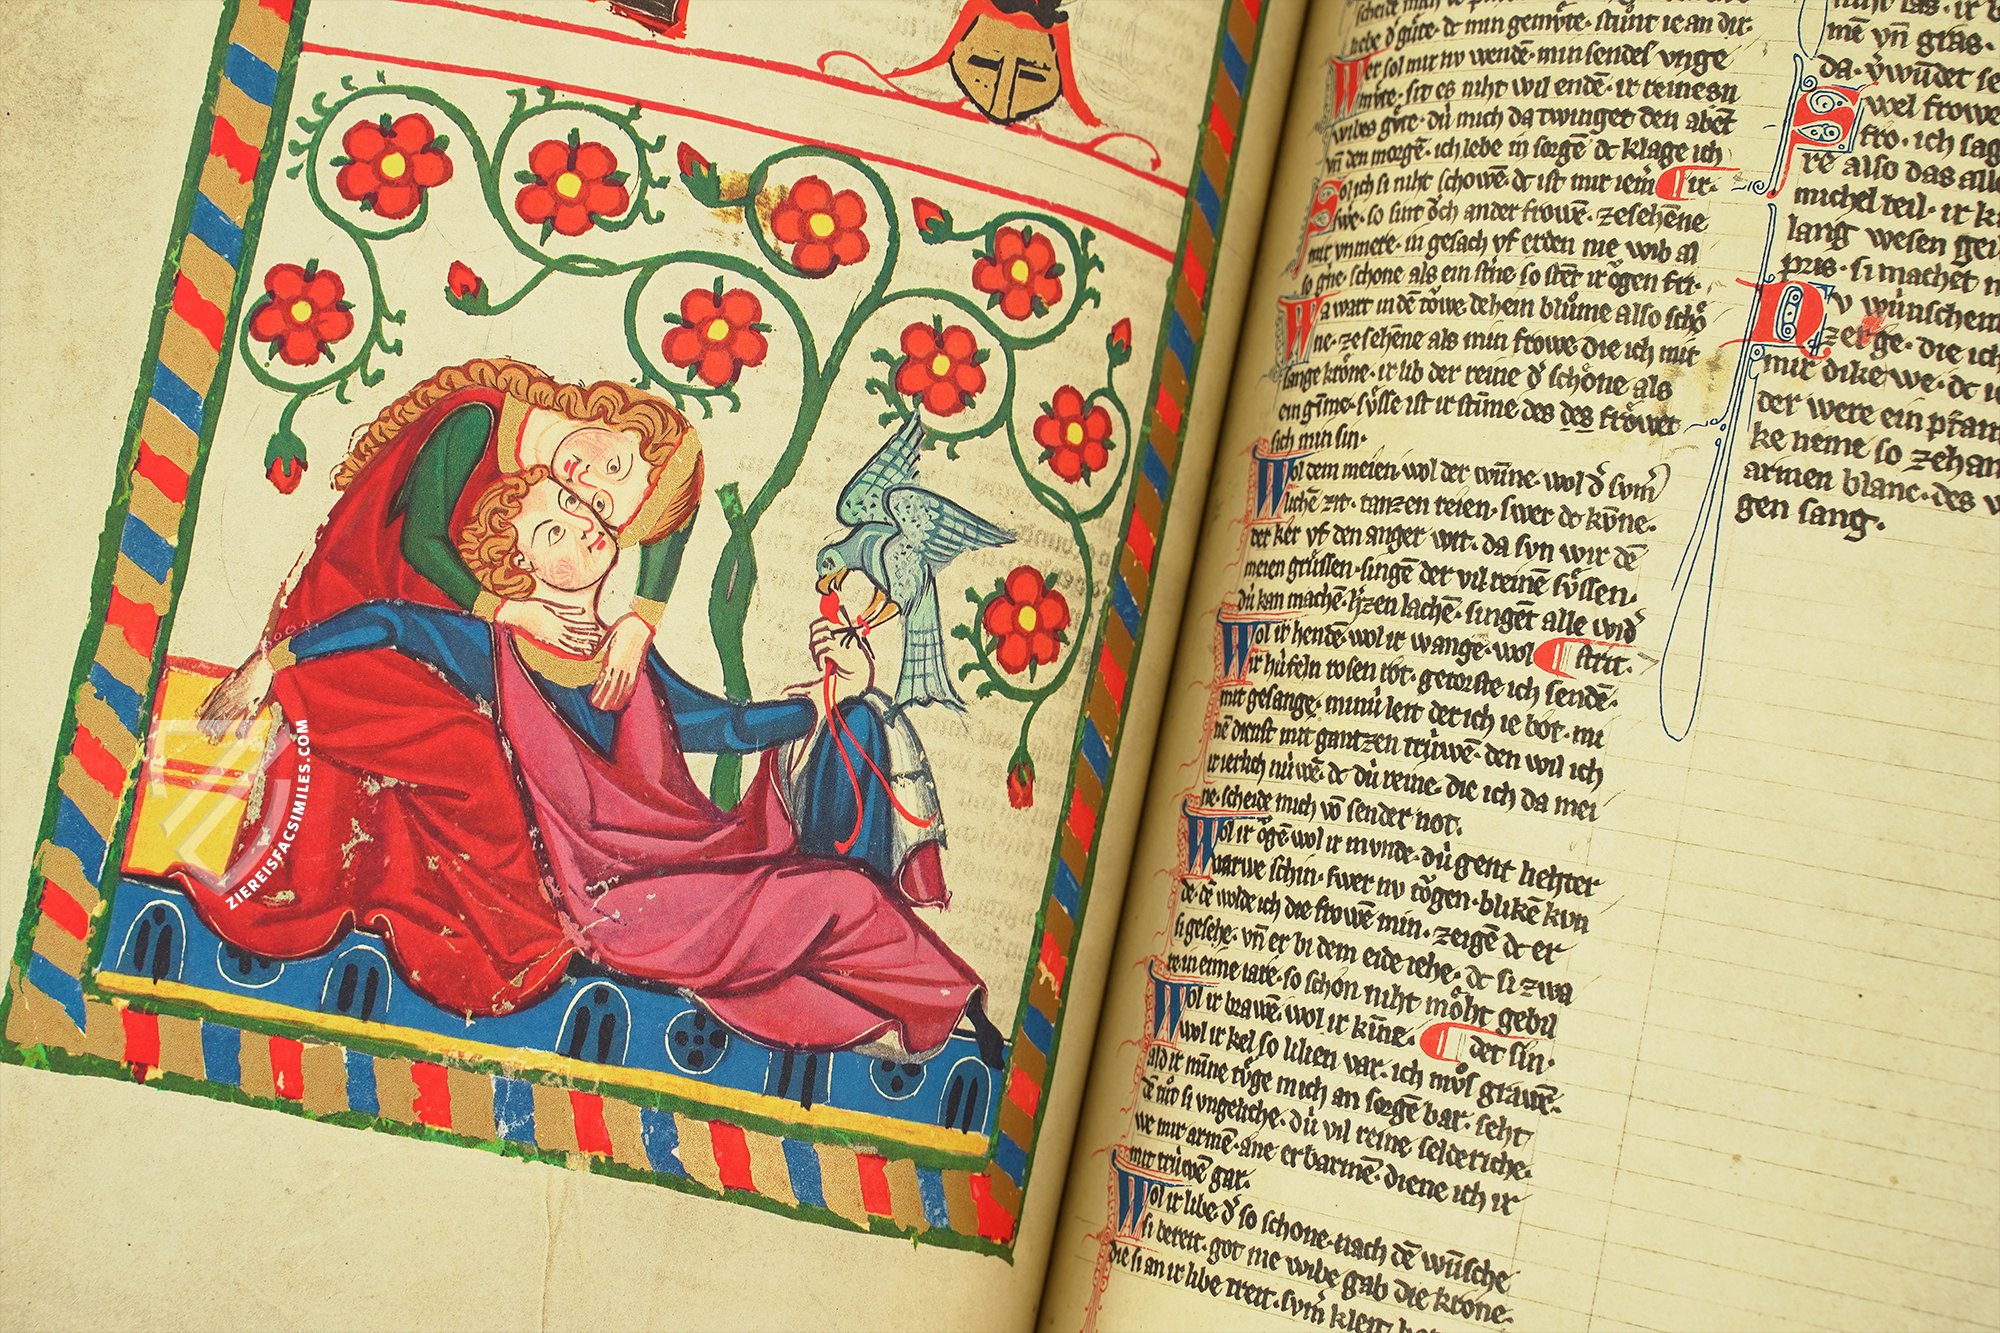 ZIEREISFACSIMILES.COM
hebe d͛ gu̍te · dc min gemv̍te · stu̍nt ie an dir ·
Wer sol mir nv wendē · min sendes vnge
mv̍te · sit es niht wil endē · ir reines
wibes gv̍te · du̍ mich da twinget den abēt
vn̄ den morgē · ich lebe in sorgē dc klage ich
Sol ich si niht schowē · dc ist mir iem̄ ¶ ir ·
swe · so sint o͛ch ander frowē · ze sehēne
mir vnmere · in gesach vf erden nie wib al
so gne · schone als ein st͛ne · so stēt ir o͛gen
Da wart in dē towe · dehein blu̍me also scho͛
ne · ze sehēne als min frowe die ich mit
sange krōne · ir lib der reine d͛ scho͛ne als
ein gīme · su̍sse ist ir stīme des des fro͛wet
sich min sin ·
Wol dem meien · wol der wu̍nne · wol d͛ svm͛
lichē zit · tanzen reien · swer dc kv̍ne ·
der ker vf den anger wit · da svn wir dē
meien gru̍ssen · singē der vil reinē su̍ssen ·
du̍ kan machē · h͛zen lachē · singēt alle wid͛
Wol ir hendē · wol ir wange · wol ¶ strit ·
ir hu̍feln rosen rot · getorste ich sendē ·
mit gesange · minu̍ leit der ich ie bot · mi
nē dienst mit gantzen tru̍wē · den wil ich
ir ierlich nu̍wē · dc du̍ reine · die ich da mei
ne · scheide mich vō sender not ·
Wol ir o͛gē · wol ir mvnde · du̍ gent liehter
varwe schin · swer nv to͛gen · blikē kvn
de · dē wolde ich die frowē min · zeigē dc er
si gesehe · vn̄ er bi dem eide iehe · dc si zwa
re in eime iare · so schon niht mo͛ht gebil
Wol ir brawē · wol ir kīne · ¶ det sin ·
wol ir kel so lilien var · ich mv͛s grawē ·
ald ir mīne to͛ge mich an sorgē bar · seht
dē tu͛t si vngeliche · du̍ vil reine selderiche ·
we mir armē · ane erbarmē · diene ich ir
mit tru̍wē gar ·
Wol ir libe · d͛ so schone · nach dē wu̍nsche
si bereit · got nie wibe gab die krone ·
die si an ir libe treit · svm͛
mē vn̄ gras ·
da · v͛wūdet
wel frowe
fro · ich sag
re also das alle
michel teil · ir
lang wesen
pris · si machet
Dv wu̍nschen
zerge · die ich
mir dike we · dc
der were ein
ke neme so zehan
armen blanc · des
gen sang ·